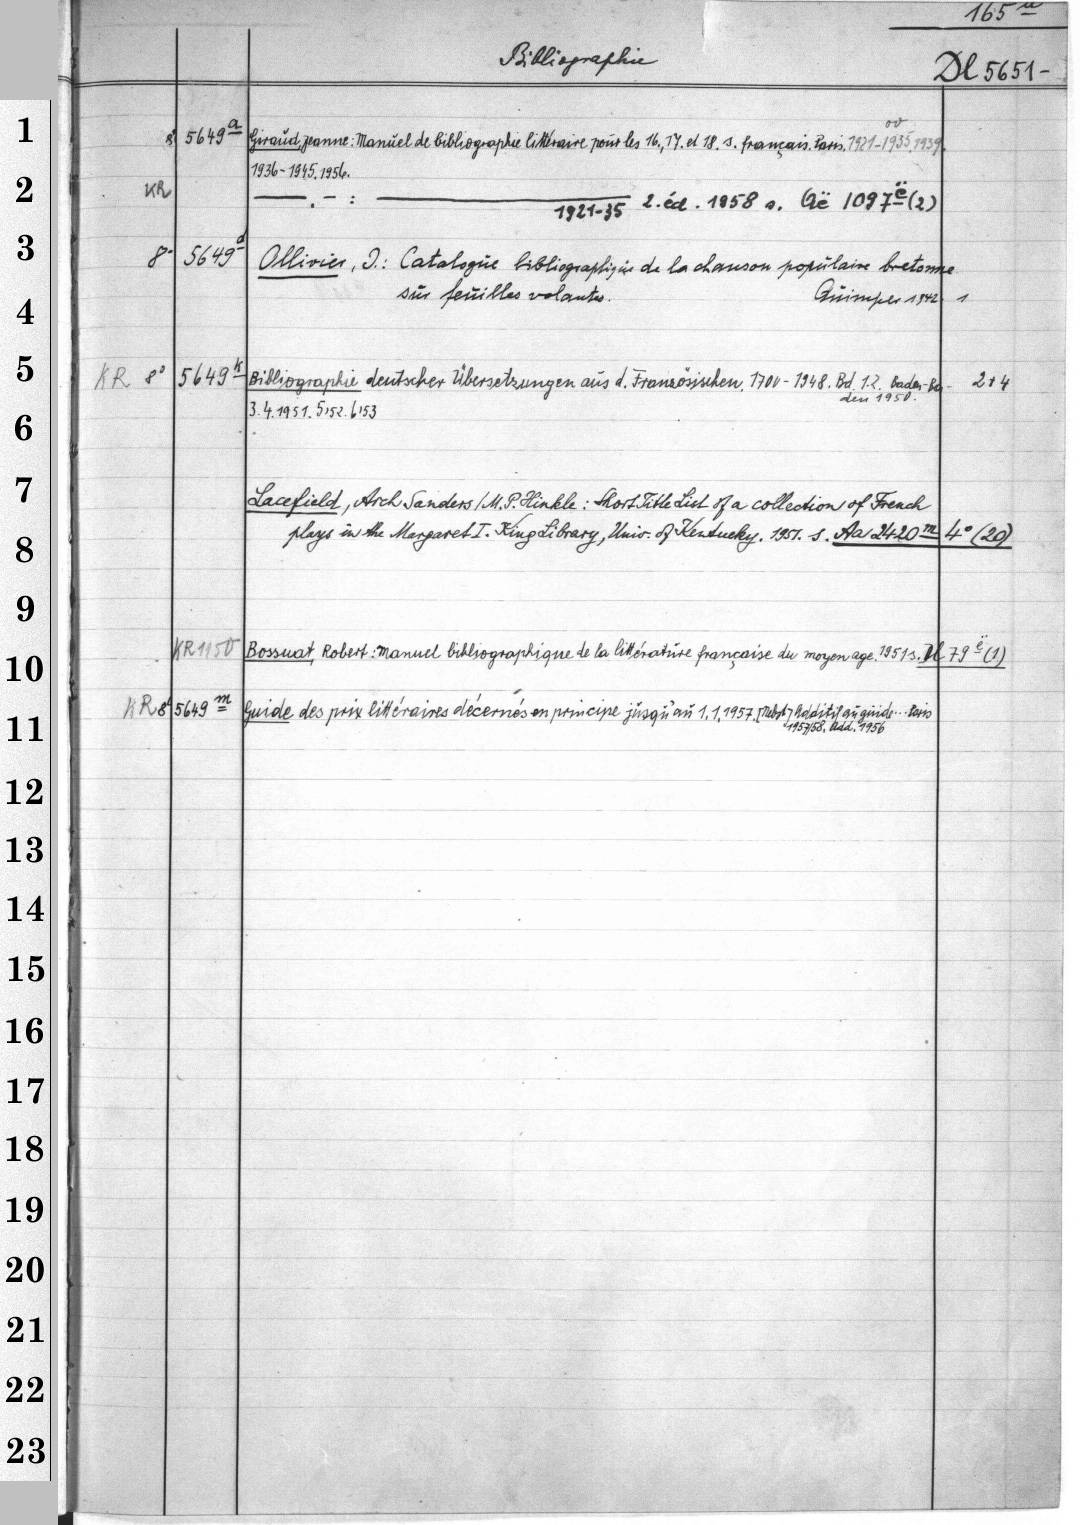 165 a
Bibliographie
Dl 5651-
1
8° 5649 a Giraud, Jeanne: Manuel de bibliographie littéraire pour les 16., 17. et 18. s. français. Paris. 1921-1935, 1939.
1936-1945. 1956.
2
KR ——. - : —————— 1921-35 2. éd. 1958 s. Aë 1097 ë (2)
3
8° 5649 d Ollivier, J.: Catalogue bibliographique de la chanson populaire bretonne
sur feuilles volantes. Quimper 1942 1
4
5
KR 8° 5649 k Bibliographie deutscher Übersetzungen aus d. Französischen, 1700-1948. Bd. 1.2. Baden-Ba- 2+4
den 1950.
3.4.1951. 5,52. 6,53
6
7
Lacefield, Arch Sanders / M.P. Hinkle: Short Title List of a collection of French
plays in the Margaret I. King Library, Univ. of Kentucky. 1951. s. Aa 2420 m 4° (20)
8
9
KR 1150 Bossuat, Robert: Manuel bibliographique de la littérature française du moyen age. 1951 s. Dl 79 ë (1)
10
KR 8° 5649 m Guide des prix littéraires décernés en principe jusqu'au 1.1.1957. [Nebst] Additif au guide... Paris
1957/58. Add. 1956
11
12
13
14
15
16
17
18
19
20
21
22
23